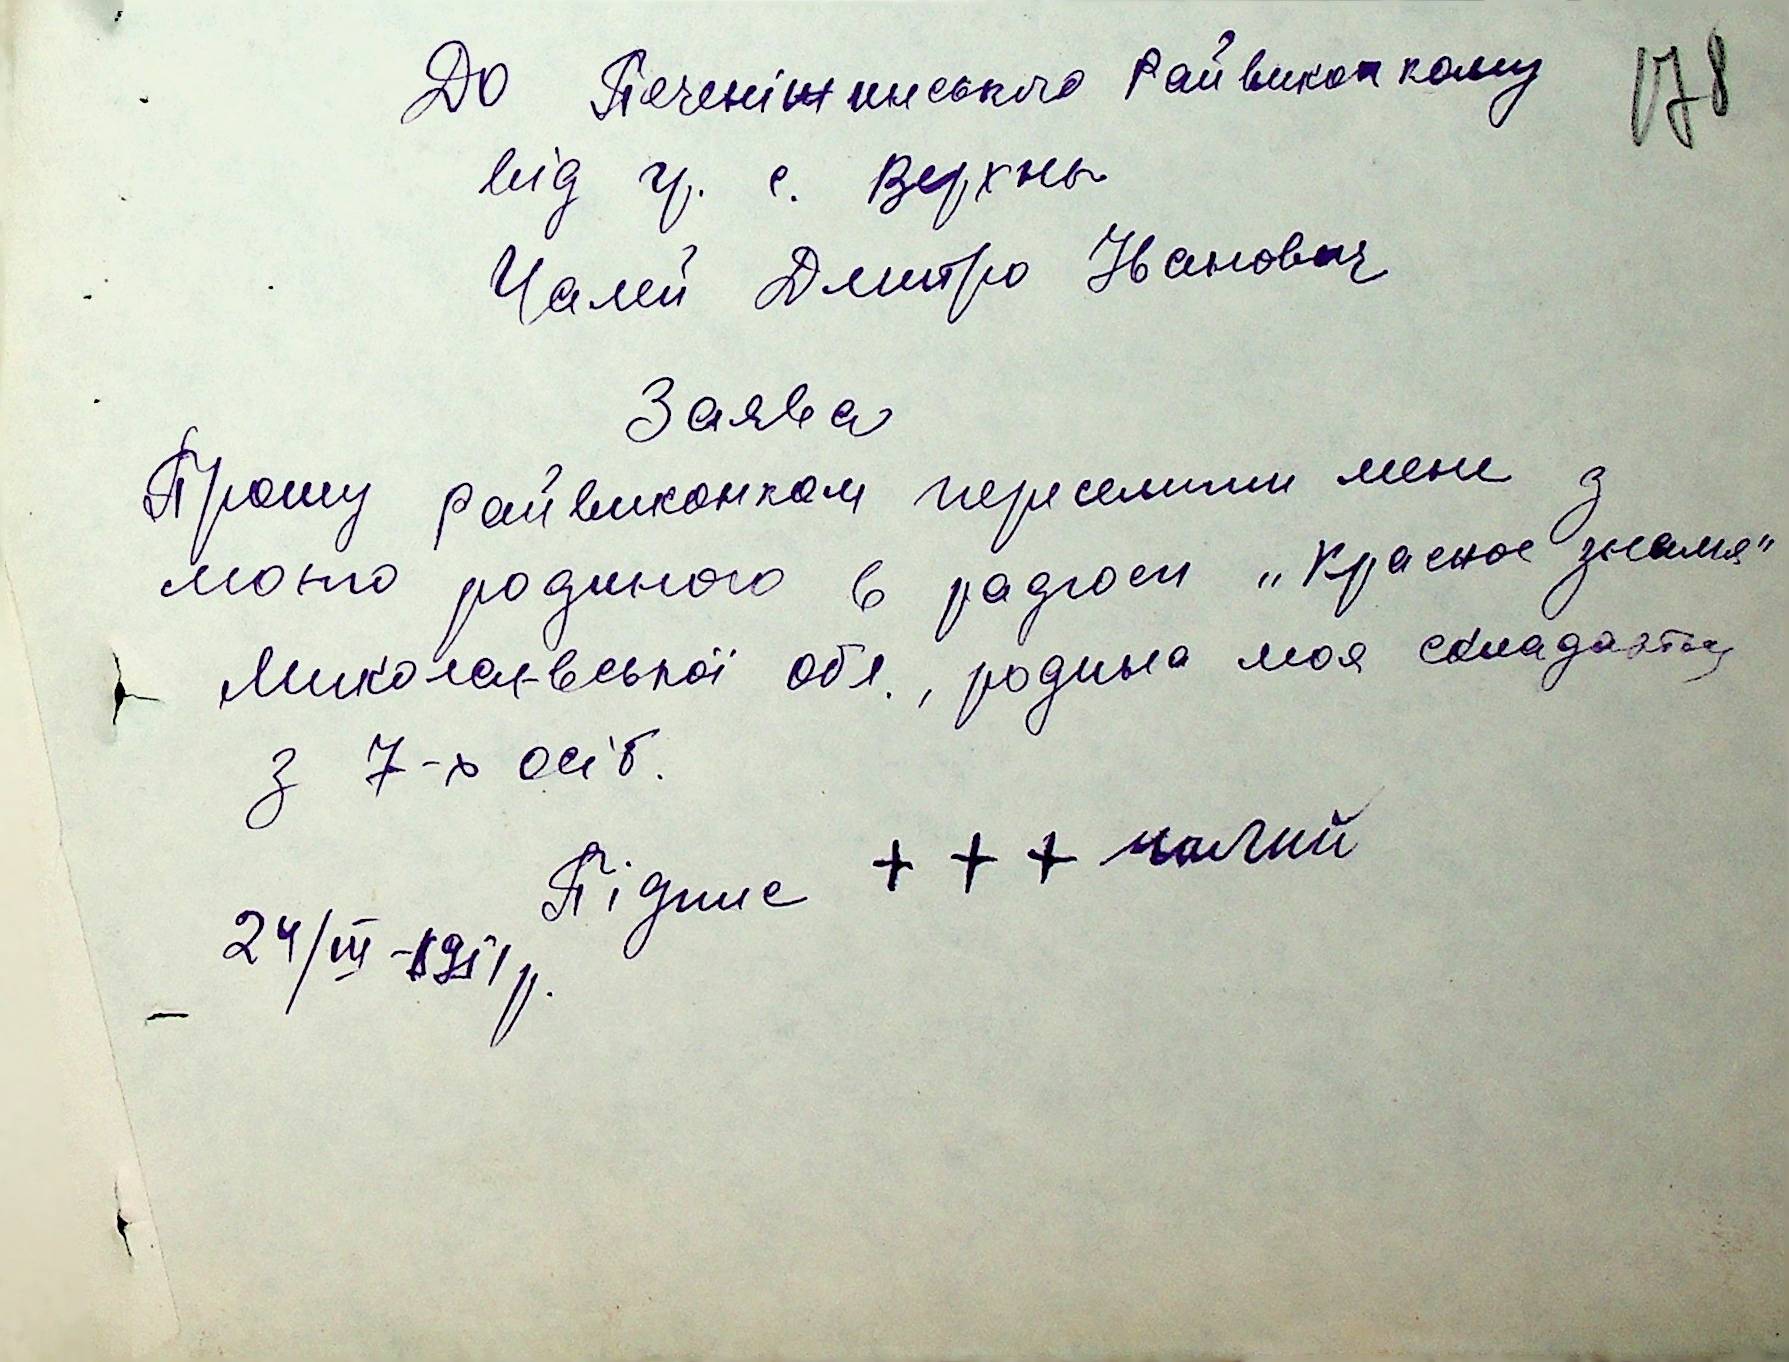 До Печеніжинського Райвиконкому
178
від гр. с. Верхнь
Чалей Дмитро Іванович
Заява
Прошу райвиконком переселити мене з
моєю родиною в радгосп „Красное знамя"
Миколаєвської обл., родина моя складаєтьц
з 7-х осіб.
Підпис + + + чалий
24/III-1951 р.